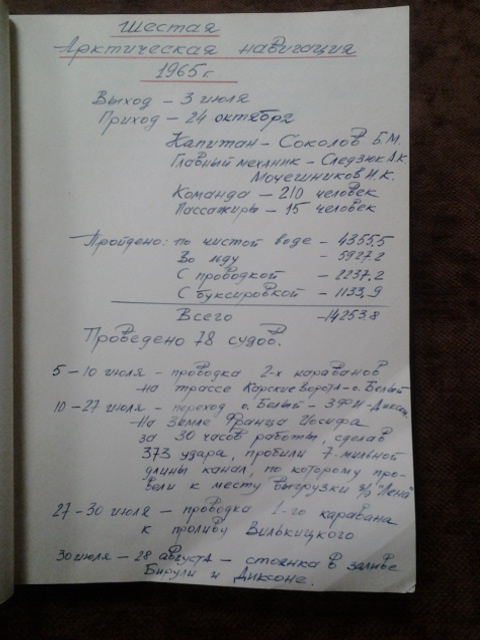 Шестая
Арктическая навигация
1965 г.
Выход – 3 июля
Приход – 24 октября
Капитан – Соколов Б.М.
Главный механик – Следзюк А.К.
Мочешников Н.К.
Команда – 210 человек
Пассажиры – 15 человек
Пройдено: по чистой воде – 4355,5
Во льду – 5927.2
С проводкой – 2237.2
С буксировкой – 1133,9
Всего – 14253.8
Проведено 78 судов.
5 – 10 июля – проводка 2-х караванов
на трассе Карские ворота – о. Белый
10 – 27 июля – переход о. Белый – ЗФИ – Диксон
На Земле Франца Иосифа
за 30 часов работы, сделав
373 удара, пробили 7-мильной
длины канал, по которому про-
вели к месту выгрузки д/э "Лена"
27 – 30 июля – проводка 1-го каравана
к проливу Вилькицкого
30 июля – 28 августа – стоянка в заливе
Бирули и Диксоне.